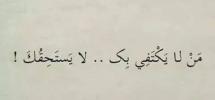 مَنْ لا يَكْتَفِي بِكَ .. لا يَستَحِقُكَ !